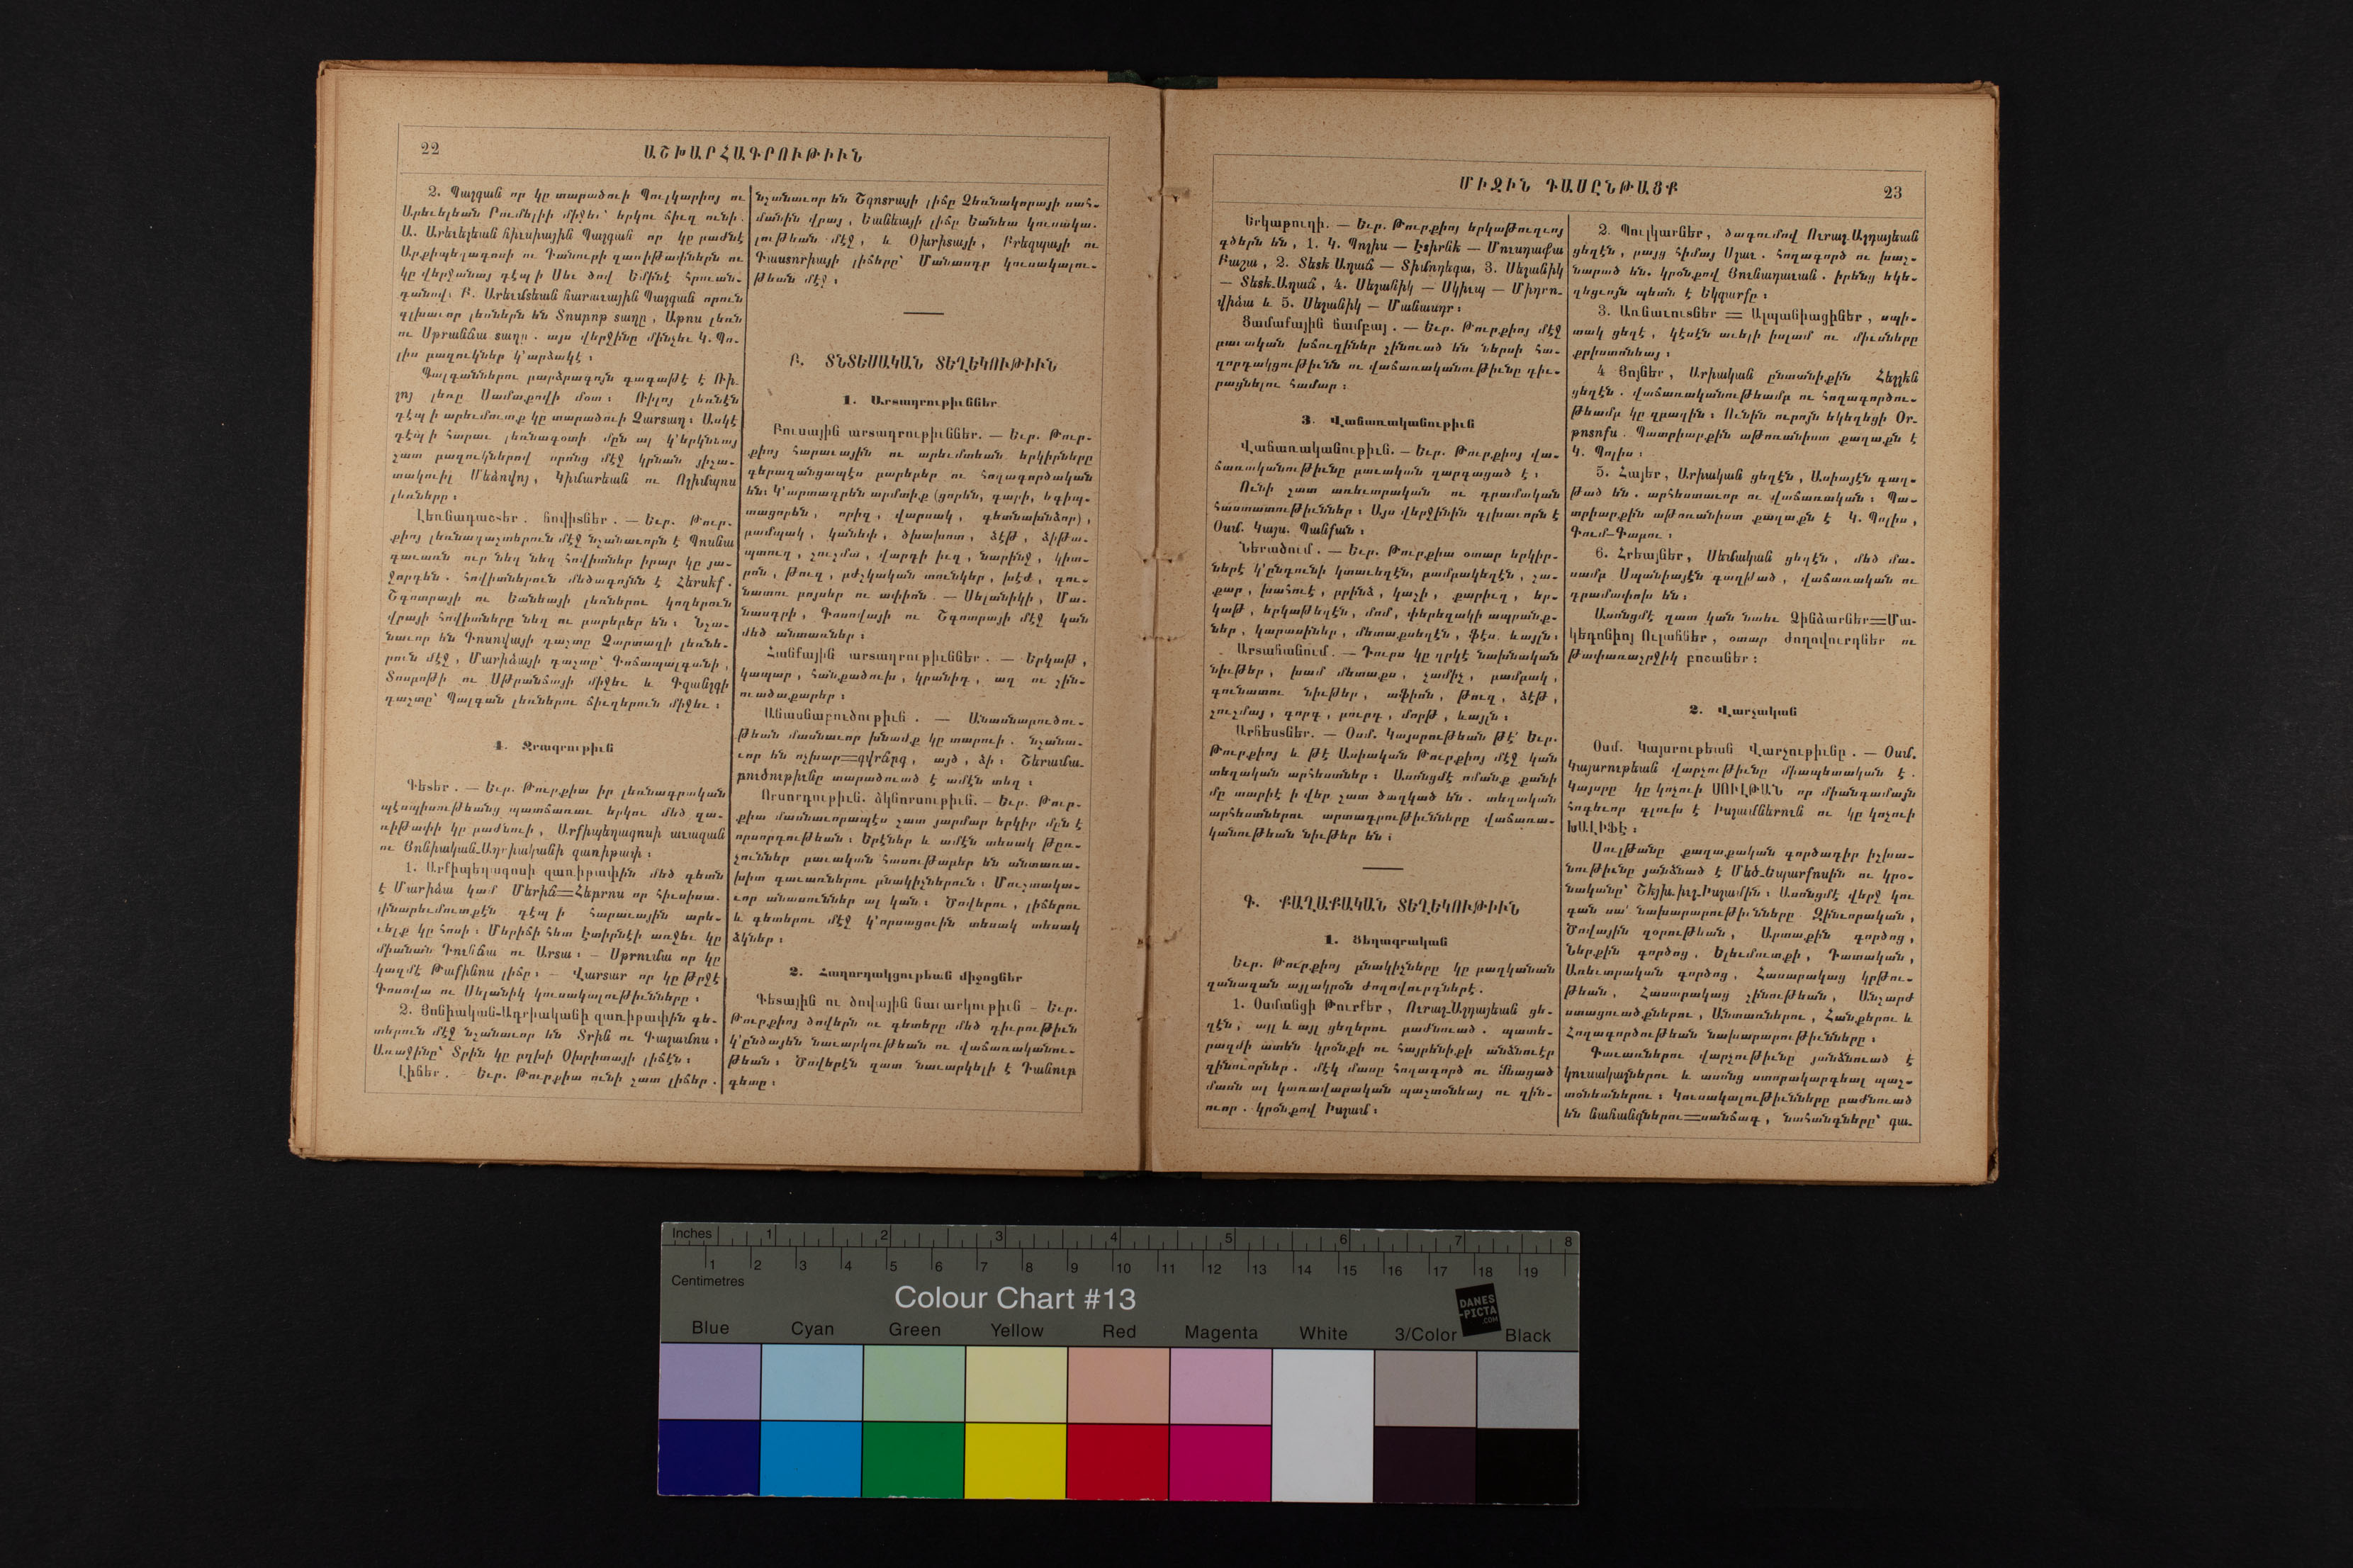 22
ԱՇԽԱՐՀԱԳՐՈՒԹԻՒՆ
2. Պալգան որ կը տարածուի Պուլկարիոյ ու
Արեւելեան Րումելիի միջեւ՝ երկու ճիւղ ունի.
Ա. Արեւելեան հիւսիսային Պալգան որ կը բաժնէ
Արքիպեղագոսի ու Դանուբի գառիթափներն ու
կը վերջանայ դէպ ի Սեւ ծով Եմինէ հրուան-
դանով։ Բ. Արեւմտեան հարաւային Պալգան որուն
գլխաւոր լեռներն են Տոսբոթ տաղը, Աթոս լեռն
ու Սթրանճա տաղը. այս վերջինը մինչեւ Կ. Պո-
լիս բազուկներ կ՚արձակէ։
Պալգաններու բարձրագոյն գագաթն է Ռի-
լոյ լեռը Սամաքովի մօտ։ Ռիլոյ լեռնէն
դէպ ի արեւմուտք կը տարածուի Չարտաղ։ Ասկէ
դէպ ի հարաւ լեռնագօտի մըն ալ կ՚երկննայ
շատ բազուկներով որոնց մէջ կրնան յիշա-
տակուիլ Մեձովոյ, Կիմարեան ու Ոլիմպոս
լեռները։
Լեռնադաշտեր. հովիտներ. — Եւր. Թուր-
քիոյ լեռնադաշտերուն մէջ նշանաւորն է Պոսնիա
գաւառն ուր նեղ նեղ հովիտներ իրար կը յա-
ջորդեն. հովիտներուն մեծագոյնն է Հերսեք.
Շգոտրայի ու Եանեայի լեռներու կողերուն
վրայի հովիտները նեղ ու բարեբեր են։ Նշա-
նաւոր են Գոսովայի դաշտը Չարտաղի լեռնե-
րուն մէջ, Մարիձայի դաշտը՝ Գոճապալգանի,
Տոսբոթի ու Սթրանճայի միջեւ և Գզանլըգի
դաշտը՝ Պալգան լեռներու ճիւղերուն միջեւ։
4. Ջրագրութիւն
Գետեր. — Եւր. Թուրքիա իր լեռնագրական
պէսպիսութեանց պատճառաւ երկու մեծ գա-
ռիթափի կը բաժնուի, Արքիպեղագոսի աւազան
ու Յոնիական-Ադրիականի գառիթափ։
1. Արքիպեղագոսի գառիթափին մեծ գետն
է Մարիձա կամ Մերիճ=Հեբրոս որ հիւսիսա-
յինարեւմուտքէն դէպ ի հարաւային արե-
ւելք կը հոսի։ Մերիճի հետ Էտիրնէի առջեւ կը
միանան Դունճա ու Արտա։ — Սթրումա որ կը
կազմէ Թաքինոս լիճը։ — Վարտար որ կը թրջէ
Գոսովա ու Սելանիկ կուսակալութիւնները։
2. Յոնիական-Ադրիականի գառիթափին գե-
տերուն մէջ նշանաւոր են Տրին ու Գալամոս։
Առաջինը՝ Տրին կը բղխի Օխրիտայի լիճէն։
Լիճեր. — Եւր. Թուրքիա ունի շատ լիճեր.
նշանաւոր են Շգոտրայի լիճը Չեռնակորայի սահ-
մանին վրայ, Եանեայի լիճը Եանեա կուսակա-
լութեան մէջ, և Օխրիտայի, Բրեզպայի ու
Գաստորիայի լիճերը՝ Մանասդր կուսակալու-
թեան մէջ։
Բ. ՏՆՏԵՍԱԿԱՆ ՏԵՂԵԿՈՒԹԻՒՆ
1. Արտադրութիւններ
Բուսային արտադրութիւններ. — Եւր. Թուր-
քիոյ հարաւային ու արեւմտեան երկիրները
գերազանցապէս բարեբեր ու հողագործական
են։ Կ՚արտադրեն արմտիք (ցորեն, գարի, եգիպ-
տացորեն, որիզ, վարսակ, գետնախնձոր),
բամպակ, կանեփ, ծխախոտ, ձէթ, ձիթա-
պտուղ, շուշմա, վարդի իւղ, նարինջ, կիտ-
րոն, թուզ, բժշկական տունկեր, խէժ, գու-
նատու բոյսեր ու ափիոն. — Սելանիկի, Մա-
նասդրի, Գոսովայի ու Շգոտրայի մէջ կան
մեծ անտառներ։
Հանքային արտադրութիւններ. — Երկաթ,
կապար, հանքածուխ, կրանիդ, աղ ու շին-
ուածաքարեր։
Անասնաբուծութիւն. — Անասնաբուծու-
թեան մասնաւոր խնամք կը տարուի. նշանա-
ւոր են ոչխար=գվրճըգ, այծ, ձի։ Շերամա-
բուծութիւնը տարածուած է ամէն տեղ։
Որսորդութիւն. ձկնորսութիւն. — Եւր. Թուր-
քիա մասնաւորապէս շատ յարմար երկիր մըն է
որսորդութեան։ Երէներ և ամէն տեսակ թըռ-
չուններ բաւական հասութաբեր են անտառա-
խիտ գաւառներու բնակիչներուն։ Մուշտակա-
ւոր անասուններ ալ կան։ Ծովերու, լիճերու
և գետերու մէջ կ՚որսացուին տեսակ տեսակ
ձկներ։
2. Հաղորդակցութեան միջոցներ
Գետային ու ծովային նաւարկութիւն — Եւր.
Թուրքիոյ ծովերն ու գետերը մեծ դիւրութիւն
կ՚ընծայեն նաւարկութեան ու վաճառականու-
թեան։ Ծովերէն զատ նաւարկելի է Դանուբ
գետը։
ՄԻՋԻՆ ԴԱՍԸՆԹԱՑՔ
23
Երկաթուղի. — Եւր. Թուրքիոյ երկաթուղւոյ
գծերն են, 1. Կ. Պոլիս — Էտիրնէ — Մուսդաֆա
Բաշա, 2. Տետէ Աղաճ — Տիմոդեգա, 3. Սելանիկ
— Տետէ-Աղաճ, 4. Սելանիկ — Սկիւպ — Միդրո-
վիձա և 5. Սելանիկ — Մանասդր։
Ցամաքային ճամբայ. — Եւր. Թուրքիոյ մէջ
բաւական խճուղիներ շինուած են ներսի հա-
ղորդակցութիւնն ու վաճառականութիւնը դիւ-
րացնելու համար։
3. Վաճառականութիւն
Վաճառականութիւն. — Եւր. Թուրքիոյ վա-
ճառականութիւնը բաւական զարգացած է։
Ունի շատ առեւտրական ու դրամական
հաստատութիւններ։ Այս վերջինին գլխաւորն է
Օսմ. Կայս. Պանքան։
Ներածում. — Եւր. Թուրքիա օտար երկիր-
ներէ կ՚ընդունի կտաւեղէն, բամբակեղէն, շա-
քար, խահուէ, բրինձ, կաշի, քարիւղ, եր-
կաթ, երկաթեղէն, մոմ, փերեզակի ապրանք-
ներ, կարասիներ, մետաքսեղէն, ֆէս, ևայլն։
Արտահանում. — Դուրս կը ղրկէ նախնական
նիւթեր, խամ մետաքս, չամիչ, բամբակ,
գունատու նիւթեր, ափիոն, թուզ, ձէթ,
շուշմայ, գորգ, բուրդ, մորթ, ևայլն։
Արհեստներ. — Օսմ. Կայսրութեան թէ՛ Եւր.
Թուրքիոյ և թէ Ասիական Թուրքիոյ մէջ կան
տեղական արհեստներ։ Ասոնցմէ ոմանք քանի
մը տարիէ ի վեր շատ ծաղկած են. տեղական
արհեստներու արտադրութիւնները վաճառա-
կանութեան նիւթեր են։
Գ. ՔԱՂԱՔԱԿԱՆ ՏԵՂԵԿՈՒԹԻՒՆ
1. Ցեղագրական
Եւր. Թուրքիոյ բնակիչները կը բաղկանան
զանազան այլակրօն ժողովուրդներէ.
1. Օսմանցի Թուրքեր, Ուրալ-Ալդայեան ցե-
ղէն, այլ և այլ ցեղերու բաժնուած. պատե-
րազմի ատեն կրօնքի ու հայրենիքի անձնուէր
զինուորներ. մէկ մասը հողագործ ու մնացած
մասն ալ կառավարական պաշտօնեայ ու զին-
ուոր. կրօնքով Իսլամ։
2. Պուլկարներ, ծագումով Ուրալ-Ալդայեան
ցեղէն, բայց հիմայ Սլաւ. հողագործ ու խաշ-
նարած են. կրօնքով Յունադաւան. իրենց եկե-
ղեցւոյն պետն է Եկզարքը։
3. Առնաւուտներ = Ալպանիացիներ, սպի-
տակ ցեղէ, կէսէն աւելի իսլամ ու միւսները
քրիստոնեայ։
4 Յոյներ, Արիական ընտանիքին Հելլեն
ցեղէն. վաճառականութեամբ ու հողագործու-
թեամբ կը զբաղին։ Ունին ուրոյն եկեղեցի Օր-
թոտոքս. Պատրիարքին աթոռանիստ քաղաքն է
Կ. Պոլիս։
5. Հայեր, Արիական ցեղէն, Ասիայէն գաղ-
թած են. արհեստաւոր ու վաճառական։ Պա-
տրիարքին աթոռանիստ քաղաքն է Կ. Պոլիս,
Գում-Գաբու։
6. Հրեայներ, Սեմական ցեղէն, մեծ մա-
սամբ Սպանիայէն գաղթած, վաճառական ու
դրամափոխ են։
Ասոնցմէ զատ կան նաեւ Չինձարներ=Մա-
կեդոնիոյ Ուլահներ, օտար ժողովուրդներ ու
թափառաշրջիկ բոշաներ։
2. Վարչական
Օսմ. Կայսրութեան Վարչութիւնը. — Օսմ.
Կայսրութեան վարչութիւնը միապետական է.
Կայսրը կը կոչուի ՍՈՒԼԹԱՆ որ միանգամայն
հոգեւոր գլուխ է Իսլամներուն ու կը կոչուի
ԽԱԼԻՖԷ։
Սուլթանը քաղաքական գործադիր իշխա-
նութիւնը յանձնած է Մեծ-Եպարքոսին ու կրօ-
նականը՝ Շէյխ-իւլ-Իսլամին։ Ասոնցմէ վերջ կու
գան սա՛ նախարարութիւնները. Զինւորական,
Ծովային զօրութեան, Արտաքին գործոց,
Ներքին գործոց, Ելեւմուտքի, Դատական,
Առեւտրական գործոց, Հասարակաց կրթու-
թեան, Հասարակաց շինութեան, Անշարժ
ստացուածքներու, Անտառներու, Հանքերու և
Հողագործութեան նախարարութիւնները։
Գաւառներու վարչութիւնը յանձնուած է
կուսակալներու և ասոնց ստորակարգեալ պաշ-
տօնեաներու։ Կուսակալութիւնները բաժնուած
են նահանգներու=սանճագ, նահանգները՝ գա-
Inches 1 2 3 4 5 6 7 8
1 2 3 4 5 6 7 8 9 10 11 12 13 14 15 16 17 18 19
Centimetres
Colour Chart #13
DANES
-PICTA
.COM
Blue Cyan Green Yellow Red Magenta White 3/Color Black